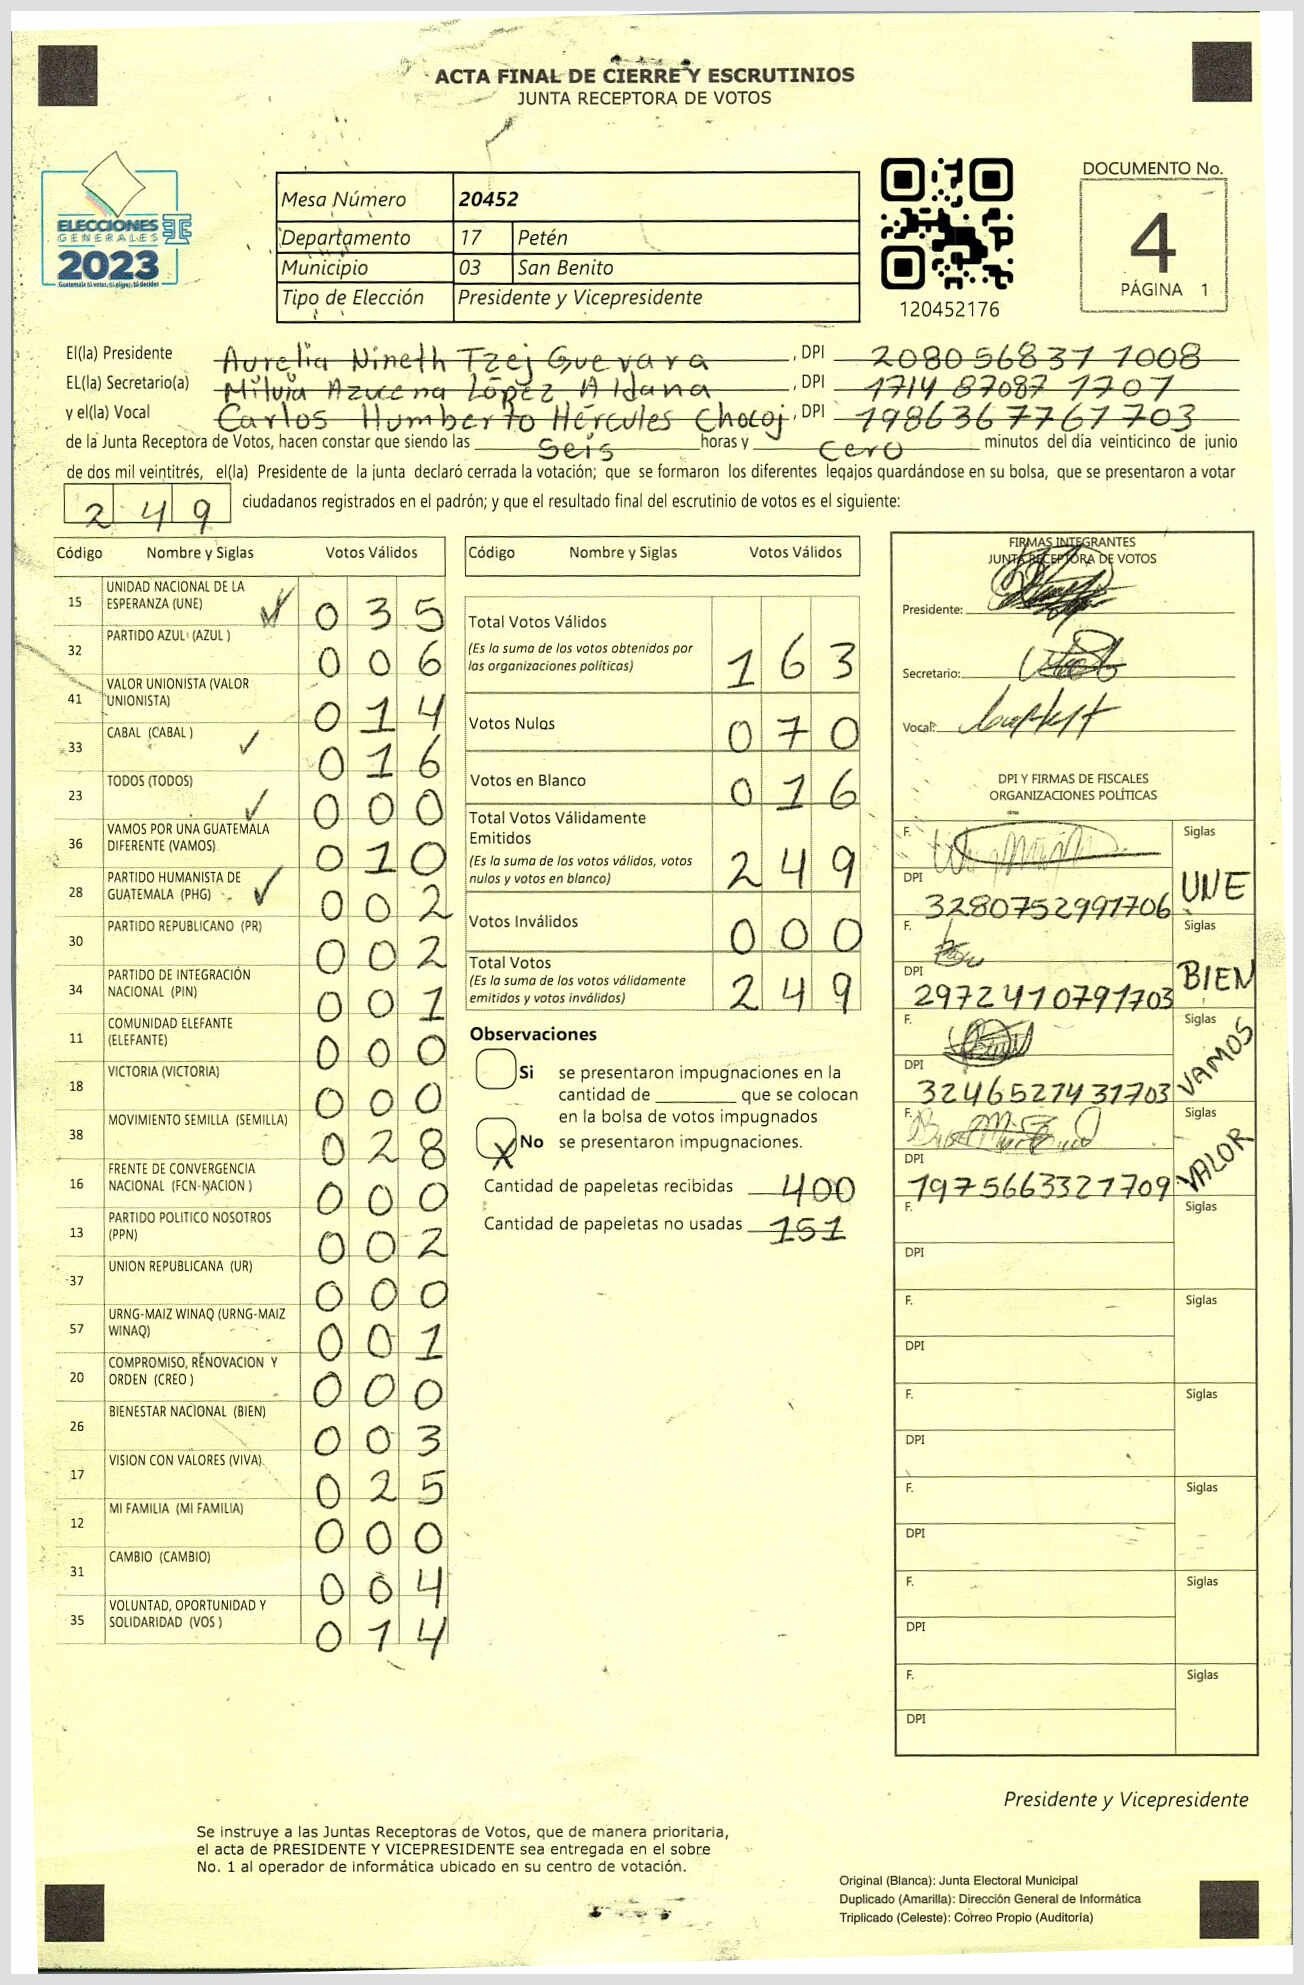 ACTA FINAL DE CIERRE Y ESCRUTINIOS
JUNTA RECEPTORA DE VOTOS
ELECCIONES
GENERALES
2023
Guatemala tú votas, tú eliges, tú decides
Mesa Número 20452
Departamento 17 Petén
Municipio 03 San Benito
Tipo de Elección Presidente y Vicepresidente
120452176
DOCUMENTO No.
4
PÁGINA 1
El(la) Presidente Aurelia Nineth Tzej Guevara, DPI 2080 56837 1008
EL(la) Secretario(a) Milvia Azucena López Aldana, DPI 1714 87087 1707
y el(la) Vocal Carlos Humberto Hércules Chocoj, DPI 1986367761703
de la Junta Receptora de Votos, hacen constar que siendo las Seis horas y Cero minutos del día veinticinco de junio
de dos mil veintitrés, el(la) Presidente de la junta declaró cerrada la votación; que se formaron los diferentes legajos guardándose en su bolsa, que se presentaron a votar
249 ciudadanos registrados en el padrón; y que el resultado final del escrutinio de votos es el siguiente:
Código Nombre y Siglas Votos Válidos
15 UNIDAD NACIONAL DE LA ESPERANZA (UNE) 035
32 PARTIDO AZUL (AZUL ) 006
41 VALOR UNIONISTA (VALOR UNIONISTA) 014
33 CABAL (CABAL ) 016
23 TODOS (TODOS) 000
36 VAMOS POR UNA GUATEMALA DIFERENTE (VAMOS) 010
28 PARTIDO HUMANISTA DE GUATEMALA (PHG) 002
30 PARTIDO REPUBLICANO (PR) 002
34 PARTIDO DE INTEGRACIÓN NACIONAL (PIN) 001
11 COMUNIDAD ELEFANTE (ELEFANTE) 000
18 VICTORIA (VICTORIA) 000
38 MOVIMIENTO SEMILLA (SEMILLA) 028
16 FRENTE DE CONVERGENCIA NACIONAL (FCN-NACION ) 000
13 PARTIDO POLITICO NOSOTROS (PPN) 002
37 UNION REPUBLICANA (UR) 000
57 URNG-MAIZ WINAQ (URNG-MAIZ WINAQ) 001
20 COMPROMISO, RENOVACION Y ORDEN (CREO ) 000
26 BIENESTAR NACIONAL (BIEN) 003
17 VISION CON VALORES (VIVA) 025
12 MI FAMILIA (MI FAMILIA) 000
31 CAMBIO (CAMBIO) 004
35 VOLUNTAD, OPORTUNIDAD Y SOLIDARIDAD (VOS ) 014
Código Nombre y Siglas Votos Válidos
Total Votos Válidos 163
(Es la suma de los votos obtenidos por
las organizaciones políticas)
Votos Nulos 070
Votos en Blanco 016
Total Votos Válidamente
Emitidos 249
(Es la suma de los votos válidos, votos
nulos y votos en blanco)
Votos Inválidos 000
Total Votos 249
(Es la suma de los votos válidamente
emitidos y votos inválidos)
Observaciones
Si se presentaron impugnaciones en la
cantidad de ________ que se colocan
en la bolsa de votos impugnados
X No se presentaron impugnaciones.
Cantidad de papeletas recibidas 400
Cantidad de papeletas no usadas 151
FIRMAS INTEGRANTES
JUNTA RECEPTORA DE VOTOS
Presidente:
Secretario:
Vocal:
DPI Y FIRMAS DE FISCALES
ORGANIZACIONES POLÍTICAS
F. Siglas
DPI 3280752991706 UNE
F. Siglas
DPI 2972410791703 BIEN
F. Siglas
DPI 3246527431703 VAMOS
F. Siglas
DPI 1975663321709 VALOR
F. Siglas
DPI
F. Siglas
DPI
F. Siglas
DPI
F. Siglas
DPI
F. Siglas
DPI
F. Siglas
DPI
Presidente y Vicepresidente
Se instruye a las Juntas Receptoras de Votos, que de manera prioritaria,
el acta de PRESIDENTE Y VICEPRESIDENTE sea entregada en el sobre
No. 1 al operador de informática ubicado en su centro de votación.
Original (Blanca): Junta Electoral Municipal
Duplicado (Amarilla): Dirección General de Informática
Triplicado (Celeste): Correo Propio (Auditoría)